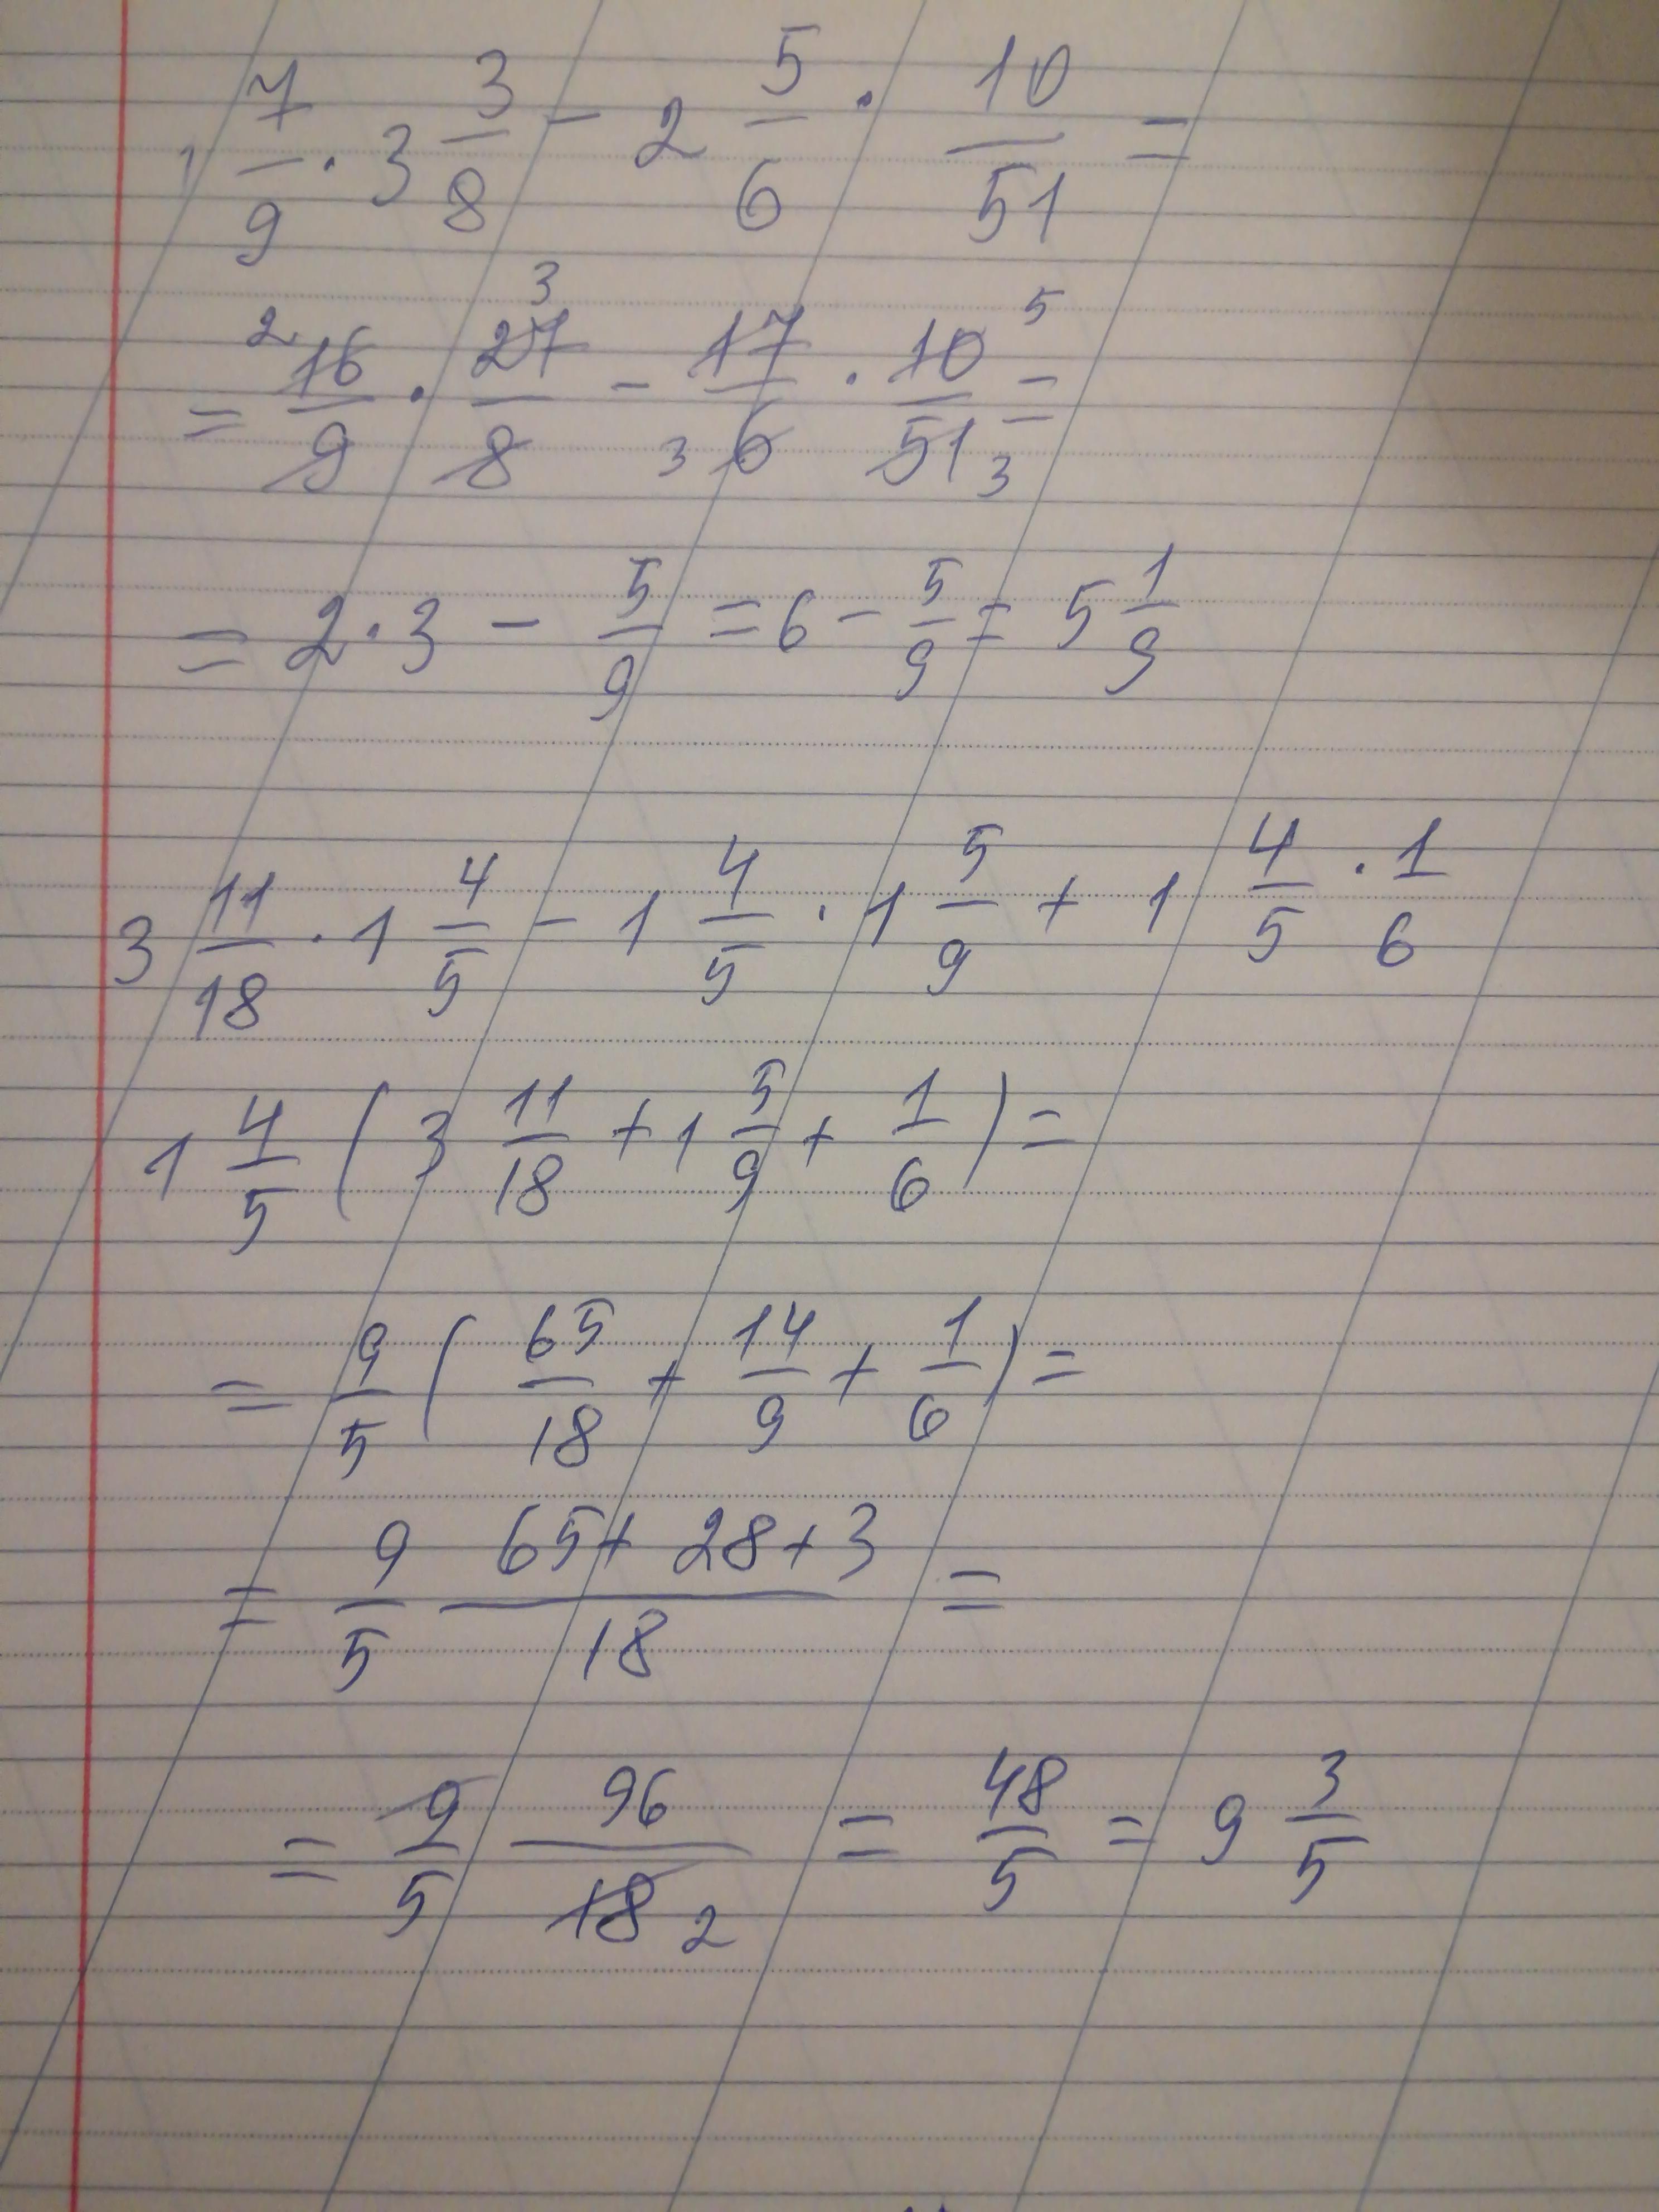 1 7/9 · 3 3/8 - 2 5/6 · 10/51 =
= 2 16/9 · 27/8 3 - 17/6 3 · 10/51 5 3 =
= 2 · 3 - 5/9 = 6 - 5/9 = 5 1/9
3 11/18 · 1 4/5 - 1 4/5 · 1 5/9 + 1 4/5 · 1/6
1 4/5 ( 3 11/18 + 1 5/9 + 1/6 ) =
= 9/5 ( 65/18 + 14/9 + 1/6 ) =
= 9/5 65 + 28 + 3/18 =
= 9/5 96/18 2 = 48/5 = 9 3/5